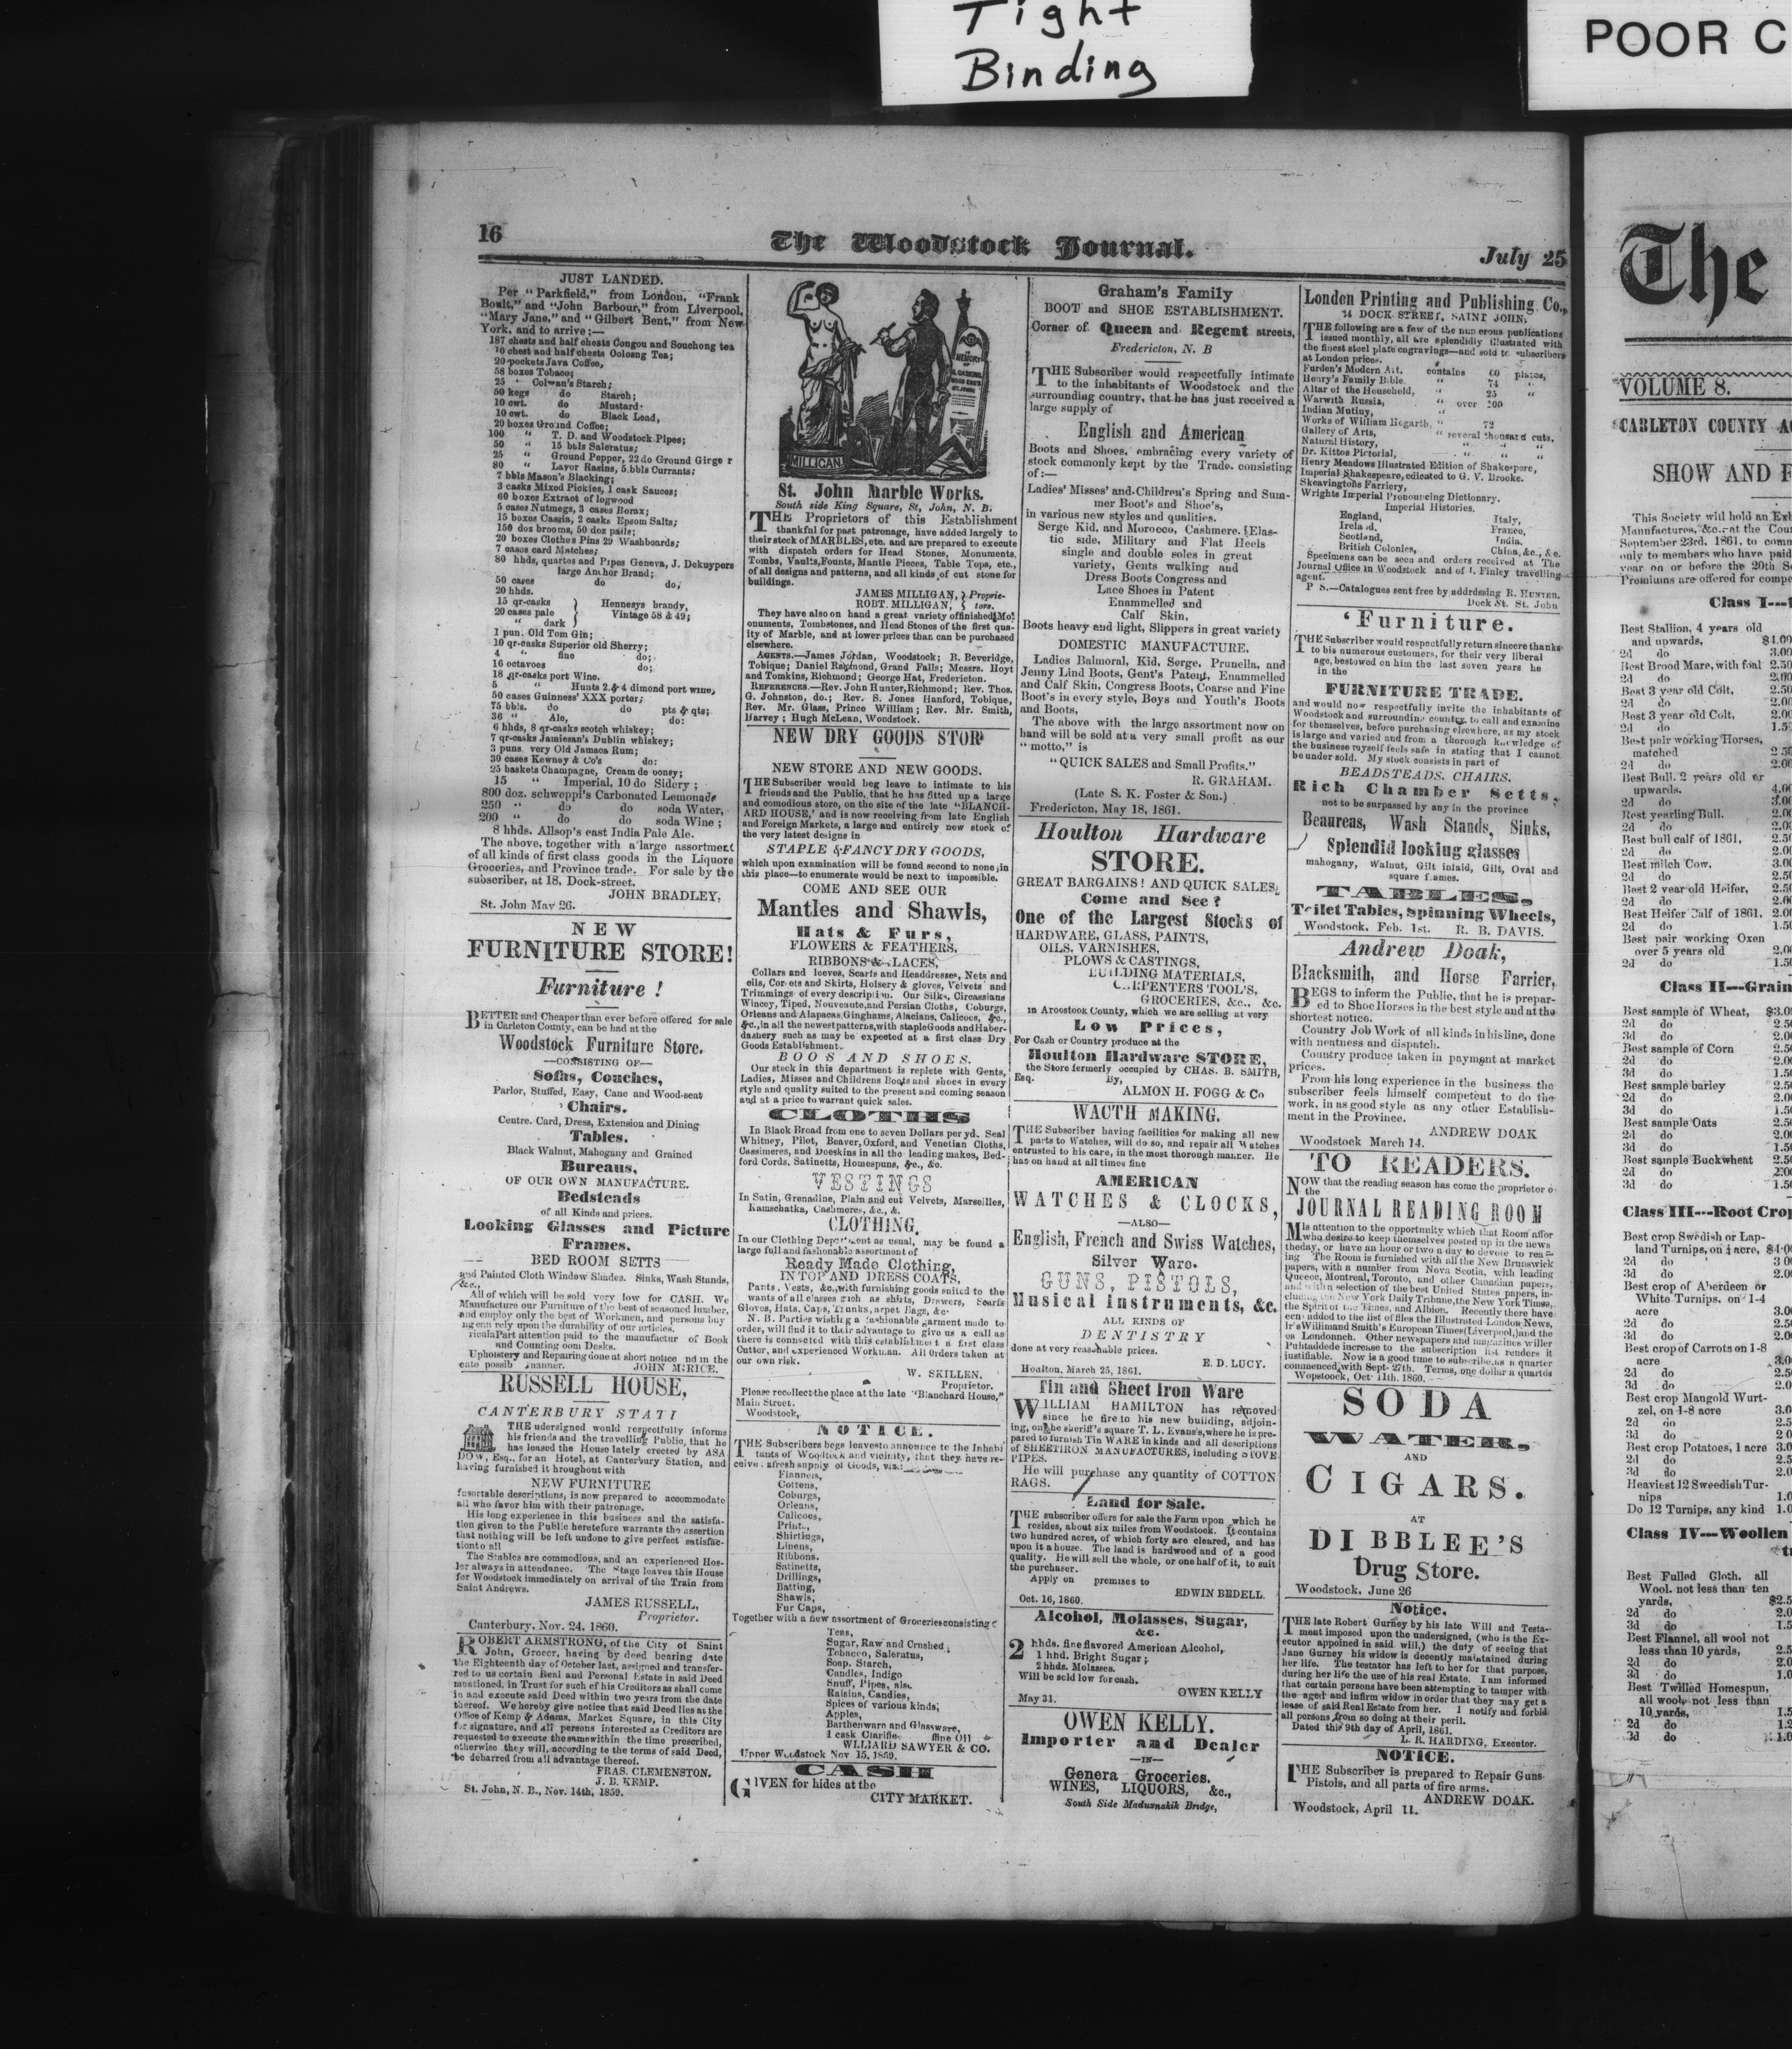 Tight
Binding
POOR C
16
The Woodstock Journal.
July 25
JUST LANDED.
Per "Parkfield," from London, "Frank
Boult," and "John Barbour," from Liverpool,
"Mary Jane," and "Gilbert Bent," from New
York, and to arrive:—
187 chests and half chests Congou and Souchong tea
10 chest and half chests Oolosng Tea;
20 pockets Java Coffee,
58 boxes Tobaco;
25 " Colman's Starch;
50 kegs do Starch;
10 cwt. do Mustard
10 cwt. do Black Lead,
20 boxes Ground Coffee;
100 " T. D. and Woodstock Pipes;
50 " 15 bbls Saleratus;
25 " Ground Pepper, 22 do Ground Ginge r
80 " Layer Rasins, 5 bbls Currants;
7 bbls Mason's Blacking;
3 casks Mixed Pickles, 1 cask Sauces;
60 boxes Extract of logwood
5 cases Nutmegs, 3 cases Borax;
15 boxes Cassia, 2 casks Epsom Salts;
150 doz brooms, 50 doz pails;
20 boxes Clothes Pins 29 Washboards;
7 cases card Matches;
80 hhds, quartes and Pipes Geneva, J. Dekuypers
large Anchor Brand;
50 cases do do,
20 hhds.
15 qr-casks Hennesys brandy,
20 cases pale Vintage 58 & 49;
" dark
1 pun. Old Tom Gin;
10 qr-casks Superior old Sherry;
4 " fine do;
16 octavoes do;
18 qr-casks port Wine.
5 " Hunts 2 & 4 dimond port wine,
50 cases Guinness' XXX porter;
75 bbls. do do pts & qts;
36 " Ale, do:
6 hhds, 8 qr-casks scotch whiskey;
7 qr-casks Jamiesan's Dublin whiskey;
3 puns. very Old Jamaca Rum;
30 cases Kewney & Co's do:
25 baskets Champagne, Cream de vonsy;
15 " Imperial, 10 do Sidery;
800 doz. schweppi's Carbonated Lemonade
250 " do do soda Water,
200 " do do soda Wine;
8 hhds. Allsop's east India Pale Ale.
The above, together with a large assortment
of all kinds of first class goods in the Liquore
Groceries, and Province trade. For sale by the
subscriber, at 18, Dock-street.
JOHN BRADLEY,
St. John May 26.
NEW
FURNITURE STORE!
Furniture!
BETTER and Cheaper than ever before offered for sale
in Carleton County, can be had at the
Woodstock Furniture Store.
—CONSISTING OF—
Sofas, Couches,
Parlor, Stuffed, Easy, Cane and Wood-seat
Chairs.
Centre. Card, Dress, Extension and Dining
Tables.
Black Walnut, Mahogany and Grained
Bureaus,
OF OUR OWN MANUFACTURE.
Bedsteads
of all Kinds and prices.
Looking Glasses and Picture
Frames.
BED ROOM SETTS
and Painted Cloth Window Shades. Sinks, Wash Stands,
&c.,
All of which will be sold very low for CASH. We
Manufacture our Furniture of the best of seasoned lumber,
and employ only the best of Workmen, and persons buy
ing can rely upon the durability of our articles.
riculaPart attention paid to the manufactur of Book
and Counting oom Desks.
Upholstery and Repairing done at short notice nd in the
eate possib manner. JOHN McRICE.
RUSSELL HOUSE,
CANTERBURY STATI
THE ndersigned would respectfully informs
his friends and the travelling Public, that he
has leased the House lately erected by ASA
DOW, Esq., for an Hotel, at Canterbury Station, and
having furnished it throughout with
NEW FURNITURE
fusortable descriptions, is now prepared to accommodate
all who favor him with their patronage.
His long experience in this business and the satisfa-
tion given to the Public heretefore warrants the assertion
that nothing will be left undone to give perfect satisfac-
tion to all
The Stables are commodious, and an experienced Hos-
ler always in attendance. The Stage leaves this House
for Woodstock immediately on arrival of the Train from
Saint Andrews.
JAMES RUSSELL,
Proprietor.
Canterbury, Nov. 24, 1860.
ROBERT ARMSTRONG, of the City of Saint
John, Grocer, having by deed bearing date
the Eighteenth day of October last, assigned and transfer-
red to us certain Real and Personal Estate in said Deed
mentioned, in Trust for such of his Creditors as shall come
in and execute said Deed within two years from the date
thereof. We hereby give notice that said Deed lies at the
Office of Kemp & Adams, Market Square, in this City
for signature, and all persons interested as Creditors are
requested to execute the same within the time prescribed,
otherwise they will, according to the terms of said Deed,
be debarred from all advantage thereof.
FRAS. CLEMENSTON.
J. B. KEMP.
St. John, N. B., Nov. 14th, 1859.
MILLIGAN
St. John Marble Works.
South side King Square, St, John, N. B.
THE Proprietors of this Establishment
thankful for past patronage, have added largely to
their stock of MARBLES, etc. and are prepared to execute
with dispatch orders for Head Stones, Monuments,
Tombs, Vaults, Founts, Mantle Pieces, Table Tops, etc.,
of all designs and patterns, and all kinds of cut stone for
buildings.
JAMES MILLIGAN, Proprie-
ROBT. MILLIGAN, tors.
They have also on hand a great variety of finished Mo-
onuments, Tombstones, and Head Stones of the first qua-
ity of Marble, and at lower prices than can be purchased
elsewhere.
AGENTS.—James Jordan, Woodstock; B. Beveridge,
Tobique; Daniel Raymond, Grand Falls; Messrs. Hoyt
and Tomkins, Richmond; George Hat, Fredericton.
REFERENCES.—Rev. John Hunter, Richmond; Rev. Thos.
G. Johnston, do.; Rev. S. Jones Hanford, Tobique,
Rev. Mr. Glass, Prince William; Rev. Mr. Smith,
Harvey; Hugh McLean, Woodstock.
NEW DRY GOODS STOR
NEW STORE AND NEW GOODS.
THE Subscriber would beg leave to intimate to his
friends and the Public, that he has fitted up a large
and comodious store, on the site of the late "BLANCH-
ARD HOUSE,' and is now receiving from late English
and Foreign Markets, a large and entirely new stock of
the very latest designs in
STAPLE & FANCY DRY GOODS,
which upon examination will be found second to none, in
this place—to enumerate would be next to impossible.
COME AND SEE OUR
Mantles and Shawls,
Hats & Furs,
FLOWERS & FEATHERS,
RIBBONS & LACES,
Collars and leeves, Scarfs and Headdresses, Nets and
eils, Cor ets and Skirts, Hoisery & gloves, Velvets and
Trimmings of every description. Our Silks, Circassians
Wincey, Tiped, Nouveaute, and Persian Cloths, Coburgs,
Orleans and Alapacas, Ginghams, Alacians, Calicoes, &c.,
&c., in all the newest patterns, with staple Goods and Haber-
dashery such as may be expected at a first class Dry
Goods Establishment.
BOOS AND SHOES.
Our stock in this department is replete with Gents,
Ladies, Misses and Childrens Boots and shoes in every
style and quality suited to the present and coming season
and at a price to warrant quick sales.
CLOTHS
In Black Broad from one to seven Dollars per yd. Seal
Whitney, Pilot, Beaver, Oxford, and Venetian Cloths,
Cassimeres, and Doeskins in all the leading makes, Bed-
ford Cords, Satinetts, Homespuns, &c., &c.
VESTINGS
In Satin, Grenadine, Plain and cut Velvets, Marseilles,
Kamschatka, Cashmeres, &c., &.
CLOTHING,
In our Clothing Department as usual, may be found a
large full and fashonable assortment of
Ready Made Clothing,
IN TOP AND DRESS COATS,
Pants, Vests, &c., with furnishing goods suited to the
wants of all classes such as shirts, Drawers, Scarfs
Gloves, Hats, Caps, Trunks, arpet Bags, &c.
N. B. Parties wishing a fashionable garment made to
order, will find it to their advantage to give us a call as
there is connected with this establishment a first class
Cutter, and experienced Workman. All Orders taken at
our own risk.
W. SKILLEN.
Proprietor.
Please recollect the place at the late "Blanchard House,"
Main Street.
Woodstock,
NOTICE.
THE Subscribers begs leave to announce to the Inhabi
tants of Woodtock and vicinity, that they have re-
ceive afresh supply of Goods, viz:
Flannels,
Cottens,
Coburgs,
Orleans,
Calicoes,
Prints,
Shirtings,
Linens,
Ribbons.
Satinetts,
Drillings,
Batting,
Shawls,
Fur Caps,
Together with a new assortment of Groceries consisting
Teas,
Sugar, Raw and Crushed,
Tobacco, Saleratus,
Soap. Starch,
Candles, Indigo
Snuff, Pipes, also.
Raisins, Candies,
Spices of various kinds,
Apples,
Barthenware and Glassware,
1 cask Clarifie fine Oil
WLLIARD SAWYER & CO.
Upper Woodstock Nov 15, 1859.
CASH
GIVEN for hides at the
CITY MARKET.
Graham's Family
BOOT and SHOE ESTABLISHMENT.
Corner of Queen and Regent streets,
Fredericton, N. B
THE Subscriber would respectfully intimate
to the inhabitants of Woodstock and the
surrounding country, that he has just received a
large supply of
English and American
Boots and Shoes, embracing every variety of
stock commonly kept by the Trade. consisting
of:—
Ladies' Misses' and Children's Spring and Sum-
mer Boot's and Shoe's,
in various new styles and qualities.
Serge Kid, and Morocco, Cashmere. Elas-
tic side, Military and Flat Heels
single and double soles in great
variety, Gents walking and
Dress Boots Congress and
Lace Shoes in Patent
Enammelled and
Calf Skin,
Boots heavy and light, Slippers in great variety
DOMESTIC MANUFACTURE.
Ladies Balmoral, Kid, Serge, Prunella, and
Jenny Lind Boots, Gent's Patent, Enammelled
and Calf Skin, Congress Boots, Coarse and Fine
Boot's in every style, Boys and Youth's Boots
and Boots,
The above with the large assortment now on
hand will be sold at a very small profit as our
"motto," is
"QUICK SALES and Small Profits."
R. GRAHAM.
(Late S. K. Foster & Son.)
Fredericton, May 18, 1861.
Houlton Hardware
STORE.
GREAT BARGAINS! AND QUICK SALES.
Come and See?
One of the Largest Stocks of
HARDWARE, GLASS, PAINTS,
OILS, VARNISHES,
PLOWS & CASTINGS,
BUILDING MATERIALS,
CARPENTERS TOOL'S,
GROCERIES, &c., &c.
in Aroostook County, which we are selling at very
Low Prices,
For Cash or Country produce at the
Houlton Hardware STORE,
the Store formerly occupied by CHAS. B. SMITH,
Esq. By,
ALMON H. FOGG & Co
WACTH MAKING.
THE Subscriber having facilities for making all new
parts to Watches, will do so, and repair all Watches
entrusted to his care, in the most thorough manner. He
has on hand at all times fine
AMERICAN
WATCHES & CLOCKS,
—ALSO—
English, French and Swiss Watches,
Silver Ware.
GUNS, PISTOLS,
Musical Instruments, &c.
ALL KINDS OF
DENTISTRY
done at very reasonable prices.
E. D. LUCY.
Houlton, March 25, 1861.
Tin and Sheet Iron Ware
WILLIAM HAMILTON has removed
since he fire to his new building, adjoin-
ing, on the sheriff's square T. L. Evans's, where he is pre-
pared to furnish Tin WARE in kinds and all descriptions
of SHEET IRON MANUFACTURES, including STOVE
PIPES.
He will purchase any quantity of COTTON
RAGS.
Land for Sale.
THE subscriber offers for sale the Farm upon which he
resides, about six miles from Woodstock. It contains
two hundred acres, of which forty are cleared, and has
upon it a house. The land is hardwood and of a good
quality. He will sell the whole, or one half of it, to suit
the purchaser.
Apply on premises to
EDWIN BEDELL.
Oct. 16, 1860.
Alcohol, Molasses, Sugar,
&c.
2 hhds. fine flavored American Alcohol,
1 hhd. Bright Sugar;
2 hhds. Molasses.
Will be sold low for cash.
OWEN KELLY
May 31.
OWEN KELLY.
Importer and Dealer
—IN—
Genera Groceries,
WINES, LIQUORS, &c.,
South Side Maduxnakik Bridge,
London Printing and Publishing Co.,
74 DOCK STREET, SAINT JOHN.
THE following are a few of the numerous publications
issued monthly, all are splendidly illustrated with
the finest steel plate engravings—and sold to subscribers
at London prices.
Furden's Modern Art. contains 60 plates,
Henry's Family Bible. " 74 "
Altar of the Household, " 25 "
Warwith Russia, " over 200
Indian Mutiny, "
Works of William Hogarth, " 72
Gallery of Arts, " several thousard cuts.
Natural History, " " "
Dr. Kittos Pictorial, " " "
Henry Meadows Illustrated Edition of Shakespere,
Imperial Shakespeare, edicated to G. V. Brooke.
Skeavingtons Farriery,
Wrights Imperial Pronouncing Dictionary.
Imperial Histories.
England, Italy,
Ireland, France,
Scotland, India,
British Colonies, China, &c., &c.
Specimens can be seen and orders received at The
Journal Office in Woodstock and of I. Finley travelling
agent.
P S.—Catalogues sent free by addressing R. HUNTER.
Dock St. St. John
Furniture.
THE Subscriber would respectfully return sincere thanks
to his numerous customers, for their very liberal
age, bestowed on him the last seven years he
in the
FURNITURE TRADE.
and would now respectfully invite the inhabitants of
Woodstock and surrounding country, to call and examine
for themselves, before purchasing elsewhere, as my stock
is large and varied and from a thorough knowledge of
the business myself feels safe in stating that I cannot
be under sold. My stock consists in part of
BEADSTEADS. CHAIRS.
Rich Chamber Setts,
not to be surpassed by any in the province
Beaureas, Wash Stands, Sinks,
Splendid looking glasses
mahogany, Walnut, Gilt inlaid, Gilt, Oval and
square frames.
TABLES.
Toilet Tables, Spinning Wheels,
Woodstock, Feb. 1st. R. B. DAVIS.
Andrew Doak,
Blacksmith, and Horse Farrier,
BEGS to inform the Public, that he is prepar-
ed to Shoe Horses in the best style and at the
shortest notice.
Country Job Work of all kinds in his line, done
with neatness and dispatch.
Country produce taken in payment at market
prices.
From his long experience in the business the
subscriber feels himself competent to do the
work, in as good style as any other Establish-
ment in the Province.
ANDREW DOAK
Woodstock March 14.
TO READERS.
NOW that the reading season has come the proprietor o
the
JOURNAL READING ROOM
MIs attention to the opportunity which that Room affor
who desire to keep themselves posted up in the news
theday, or have an hour or two a day to devote to rea
ing The Room is furnished with all the New Brunswick
papers, with a number from Nova Scotia, with leading
Queece, Montreal, Toronto, and other Canadian papers,
and with a selection of the best United States papers, in-
cluding the New York Daily Tribune, the New York Times,
the Spirit of the Times, and Albion. Recently there have
een added to the list of files the Illustrated London News,
lr's Willimand Smith's European Times (Liverpool,) and the
es Londonnch. Other newspapers and magazines willer
Puhtaddede increase to the subscription list renders it
justifiable. Now is a good time to subscribe, as a quarter
commenced with Sept. 27th. Terms, one dollar a quartds
Wopstoock, Oct 11th. 1860.
SODA
WATER,
AND
CIGARS.
AT
DIBBLEE'S
Drug Store.
Woodstock, June 26
Notice.
THE late Robert Gurney by his late Will and Testa-
ment imposed upon the undersigned, (who is the Ex-
ecutor appoined in said will,) the duty of seeing that
Jane Gurney his widow is decently maintained during
her life. The testator has left to her for that purpose,
during her life the use of his real Estate. I am informed
that certain persons have been attempting to tamper with
the aged and infirm widow in order that they may get a
lease of said Real Estate from her. I notify and forbid
all persons from so doing at their peril.
Dated this 9th day of April, 1861.
L. R. HARDING, Executor.
NOTICE.
THE Subscriber is prepared to Repair Guns
Pistols, and all parts of fire arms.
ANDREW DOAK.
Woodstock, April 11.
The
VOLUME 8.
CARLETON COUNTY A
SHOW AND F
This Society will hold an Exh
Manufactures, &c., at the Cou
September 23rd. 1861, to comm
only to members who have paid
year on or before the 20th S
Premiums are offered for compe
Class I—
Best Stallion, 4 years old
and upwards, $4.00
2d do 3.00
Best Brood Mare, with foal 2.50
2d do 2.00
Best 3 year old Colt, 2.50
2d do 2.00
Best 3 year old Colt, 2.00
2d do 1.5
Best pair working Horses,
matched 2 50
2d do 2.00
Best Bull. 2 years old or
upwards. 4.00
2d do 3.00
Best yearling Bull. 2.00
2d do 2.00
Best bull calf of 1861, 2.50
2d do 2.00
Best milch Cow, 3.00
2d do 2.50
Best 2 year old Heifer, 2.50
2d do 2.00
Best Heifer Calf of 1861, 2.00
2d do 1.50
Best pair working Oxen
over 5 years old 2.0
2d do 1.5
Class II—Grain
Best sample of Wheat, $3.0
2d do 2.5
3d do 2.0
Best sample of Corn 2.5
2d do 2.0
3d do 1.5
Best sample barley 2.5
2d do 2.0
3d do 1.5
Best sample Oats 2.5
2d do 2.0
3d do 1.5
Best sample Buckwheat 2.5
2d do 2.0
3d do 1.5
Class III—Root Cro
Best crop Swedish or Lap-
land Turnips, on ¼ acre, $4.0
2d do 3 0
3d do 2.0
Best crop of Aberdeen or
White Turnips. on 1-4
acre 3.0
2d do 2.5
3d do 2.0
Best crop of Carrots on 1-8
acre 3.0
2d do 2.5
3d do 2.0
Best crop Mangold Wurt-
zel, on 1-8 acre 3.0
2d do 2.5
3d do 2 0
Best crop Potatoes, 1 acre 3.0
2d do 2.5
3d do 2.0
Heaviest 12 Sweedish Tur-
nips 1.0
Do 12 Turnips, any kind 1.0
Class IV—Woollen
Best Fulled Cloth, all
Wool. not less than ten
yards, $2.5
2d do 2.0
3d do 1.5
Best Flannel, all wool not
less than 10 yards, 2.5
2d do 2.0
3d do 1.0
Best Twilled Homespun,
all wool, not less than
10 yards, 1.5
2d do 1.2
3d do 1.0